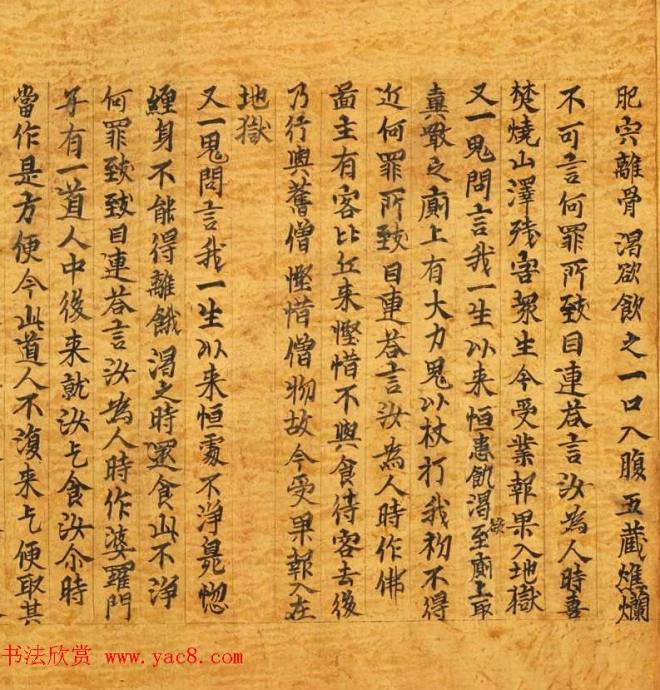 肥宍離骨渴欲飲之一口入腹五藏燋爛
不可言何罪所致目連荅言汝為人時喜
焚燒山澤殘害衆生今受業報果入地獄
又一鬼問言我一生以来恒患飢渴欲至廁上取
糞噉之廁上有大力鬼以杖打我初不得
近何罪所致目連荅言汝為人時作佛
啚主有客比丘来慳惜不與食待客去後
乃行與舊僧慳惜僧物故今受果報入在
地獄
又一鬼問言我一生以来恒處不淨臰惚
纏身不能得離餓渴之時還食此不淨
何罪致致目連荅言汝為人時作婆羅門
子有一道人中後来就汝乞食汝尒時
當作是方便令此道人不復来乞便取其
书法欣赏 www.yac8.com